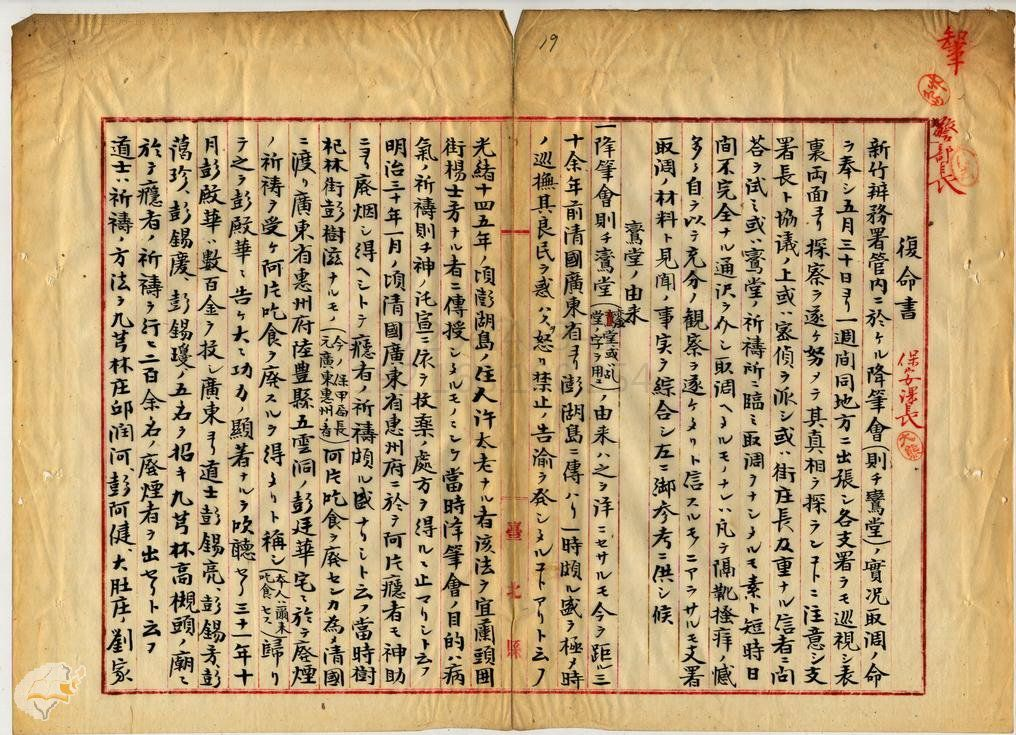 19
復命書
新竹辨務署管內ニ於ケル降筆會(則チ鸞堂)ノ實况取調ノ命
ヲ奉シ五月三十日ヨリ一週間同地方ニ出張シ各支署ヲモ巡視シ表
裏両面ヨリ探察ヲ遂ケ努メテ其真相ヲ探ランコトニ注意シ支
署長ト協議ノ上或ハ密偵ヲ派シ或ハ街庄長及重ナル信者ニ問
答ヲ試ミ或ハ鸞堂ノ祈禱所ニ臨ミ取調ヲナシタルモ素ト短時日
間不完全ナル通沢ヲ介シ取調ヘタルモノナレハ凡テ隔靴搔痒ノ憾
多ク自ラ以テ充分ノ観察ヲ遂ケタリト信スルモノニアラサルモ支署
取調ノ材料ト見聞ノ事実ヲ綜合シ左ニ御参考ニ供シ候
鸞堂ノ由来
一降筆會則チ鸞堂(鸞堂或ハ乩堂ノ字ヲ用ユ)ノ由来ハ之ヲ詳ニセサルモ今ヲ距ル三
十余年前清國廣東省ヨリ澎湖島ニ傳ハリ一時頗ル盛ヲ極メ時
ノ巡撫其良民ヲ惑ハスヲ怒リ禁止ノ告諭ヲ発シタルコトアリト云フ
光緒十四五年ノ頃澎湖島ノ住人許太老ナル者該法ヲ宜蘭頭囲
街楊士芳ナル者ニ傳授シタルモノニシテ當時降筆會ノ目的ハ病
氣ノ祈禱則チ神ノ託宣ニ依テ投薬ノ處方ヲ得ルニ止マリシト云フ
明治三十年一月ノ頃清國廣東省惠州府ニ於テ阿片癮者モ神助
ニヨリ廃烟シ得ヘシトテ癮者ノ祈禱頗ル盛ナリシト云フ當時樹
杞林街彭樹滋ナルモノ(今ノ保甲局長元廣東惠州ノ者)阿片吃食ヲ廃センカ為メ清國
ニ渡リ廣東省惠州府陸豊縣五雲洞ノ彭廷華宅ニ於テ廃煙
ノ祈禱ヲ受ケ阿片吃食ヲ廃スルヲ得タリト稱シ(本人ハ爾来吃食セス)歸リ
テ之ヲ彭殿華ニ告ケ大ニ功力ノ顯著ナルヲ吹聴セリ三十一年十
月彭殿華ハ數百金ヲ投シ廣東ヨリ道士彭錫亮、彭錫芳、彭
藹珍、彭錫慶、彭錫瓊ノ五名ヲ招キ九芎林高梘頭ノ廟ニ
於テ癮者ノ祈禱ヲ行ヒ二百余名ノ廃煙者ヲ出セリト云フ
道士ハ祈禱ノ方法ヲ九芎林庄邱潤河、彭阿健、大肚庄ノ劉家
警部長
保安課長
臺北縣